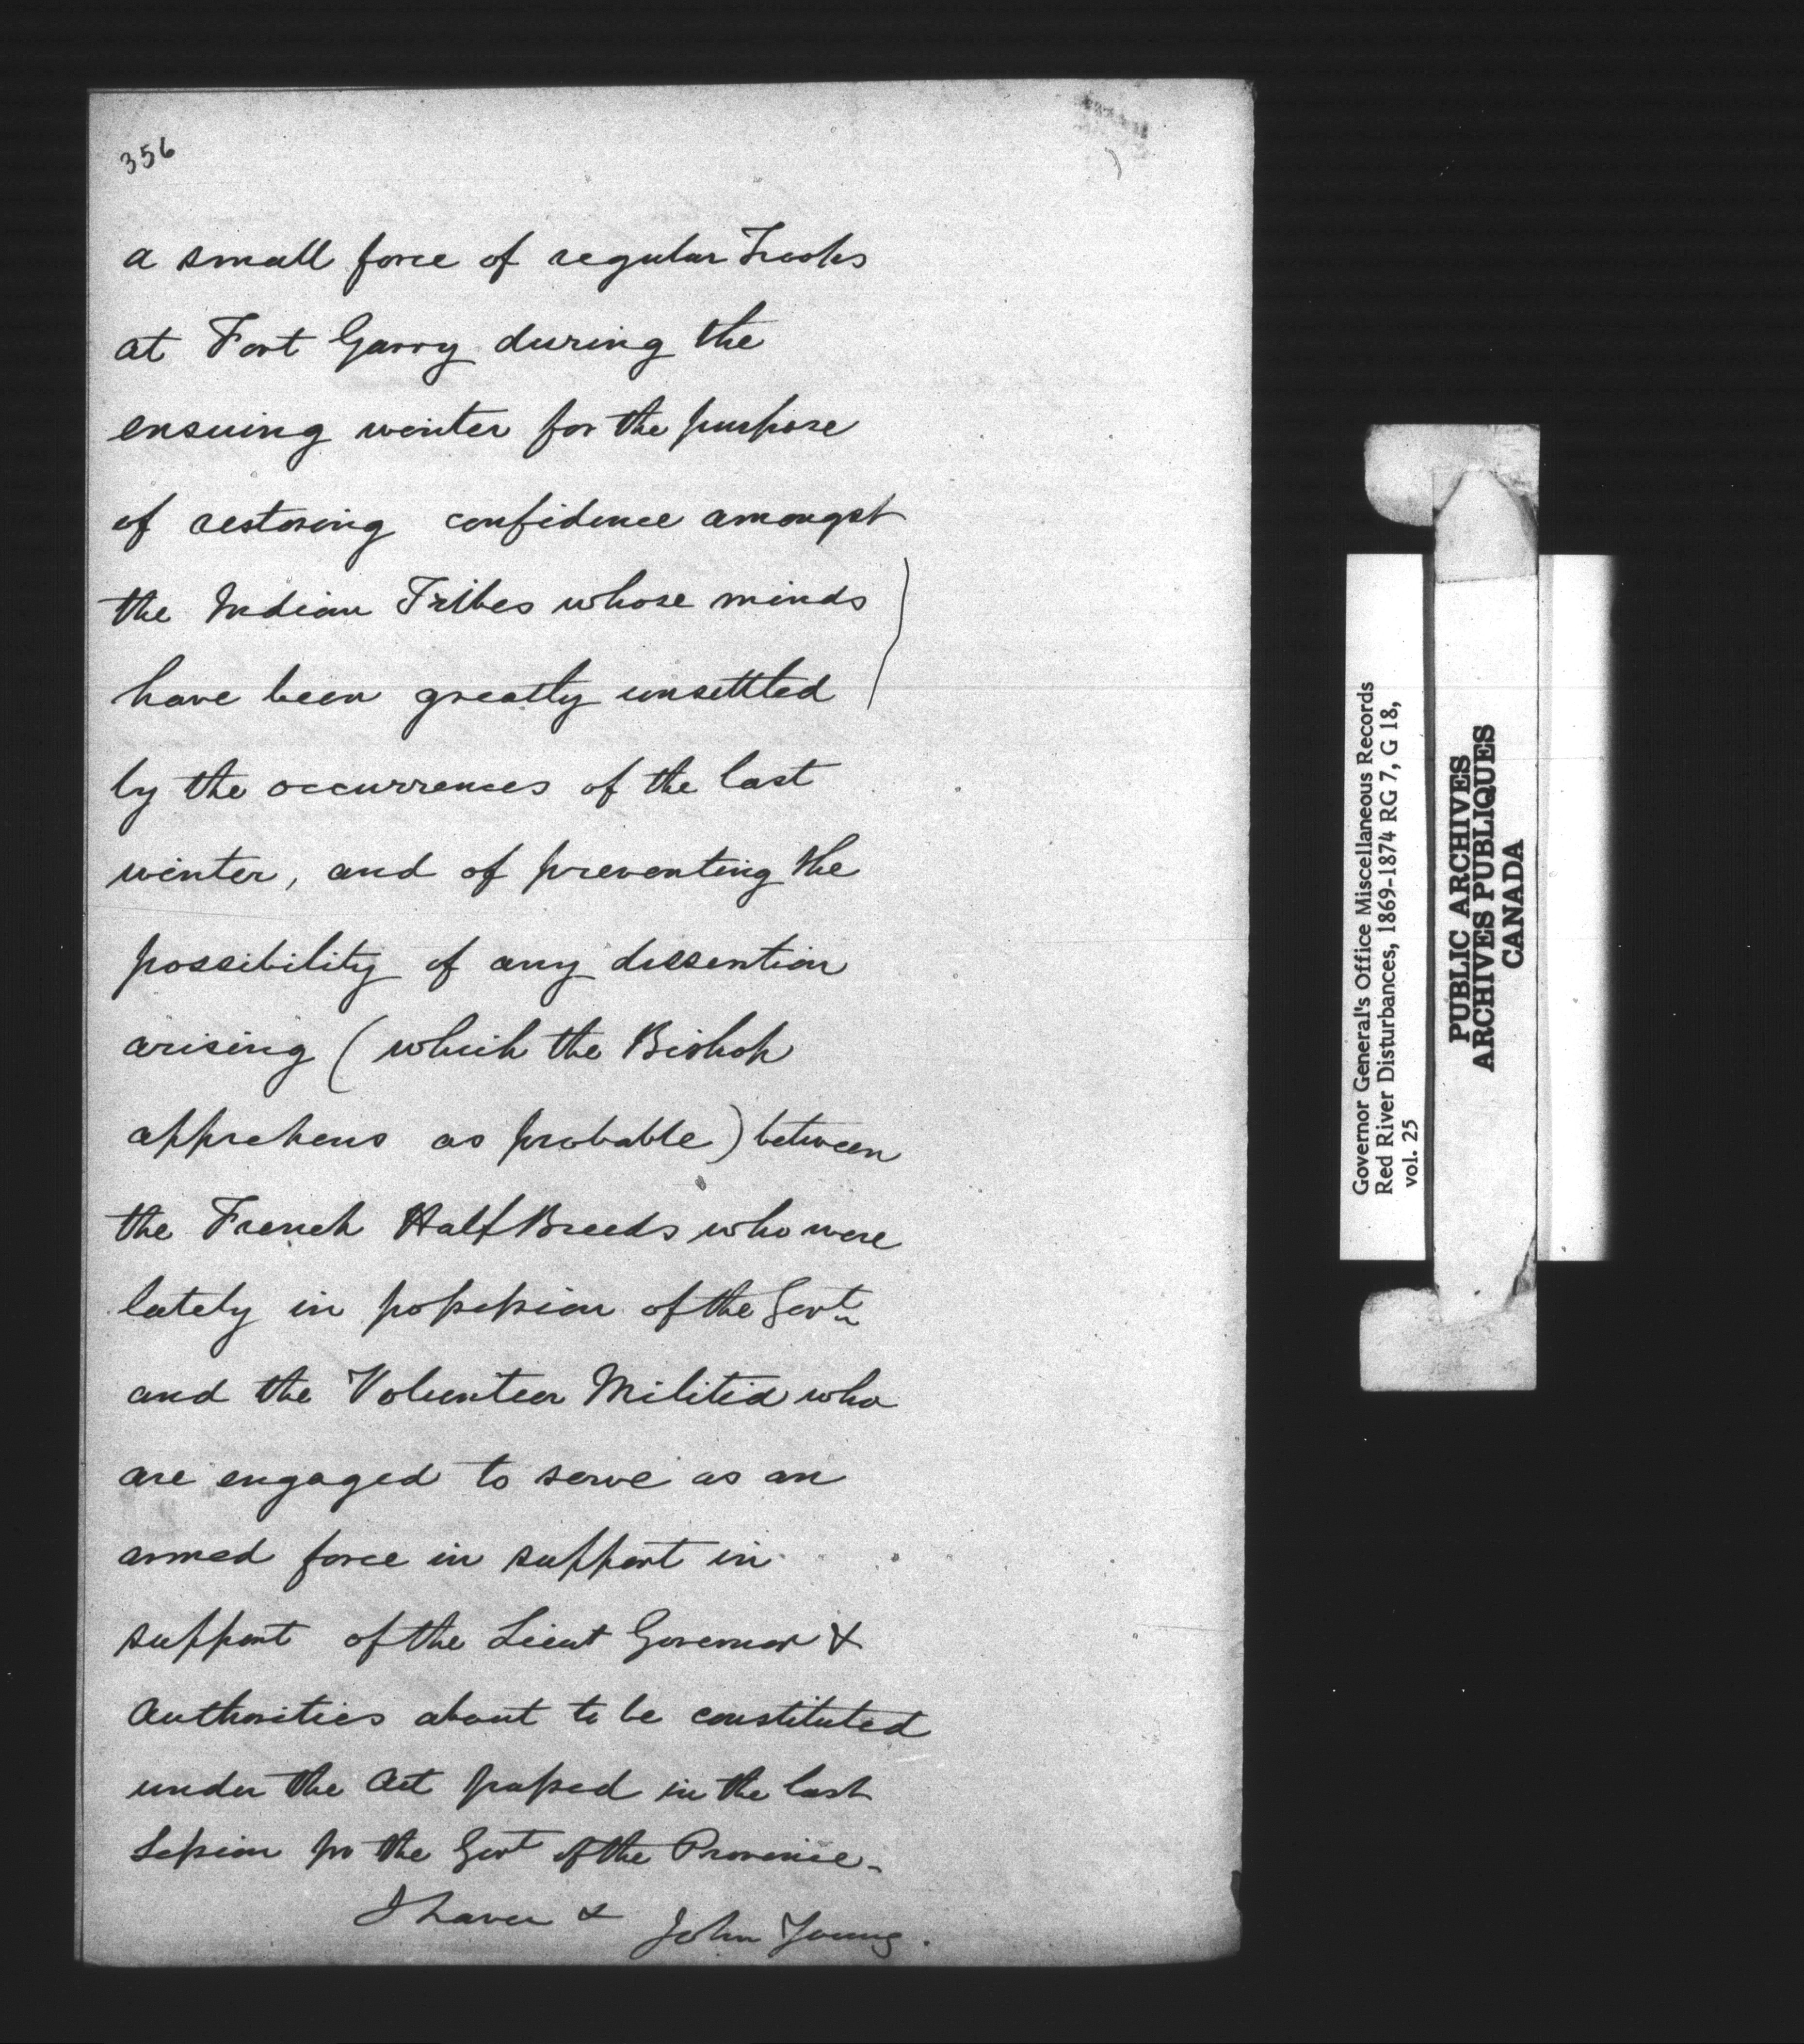 356
a small force of regular Troops
at Fort Garry during the
ensuing winter for the purpose
of restoring confidence amongst
the Indian Tribes whose minds
have been greatly unsettled
by the occurrences of the last
winter, and of preventing the
possibility of any dissention
arising (which the Bishop
apprehens as probable) between
the French Half Breeds who were
lately in possession of the Govt
and the Volunteer Militia who
are engaged to serve as an
armed force in support in
support of the Lieut Governor &
Authorities about to be constituted
under the Act passed in the last
Session for the Govt of the Province.
I have &
John Young.
Governor General's Office Miscellaneous Records
Red River Disturbances, 1869-1874 RG 7, G 18,
vol. 25
PUBLIC ARCHIVES
ARCHIVES PUBLIQUES
CANADA